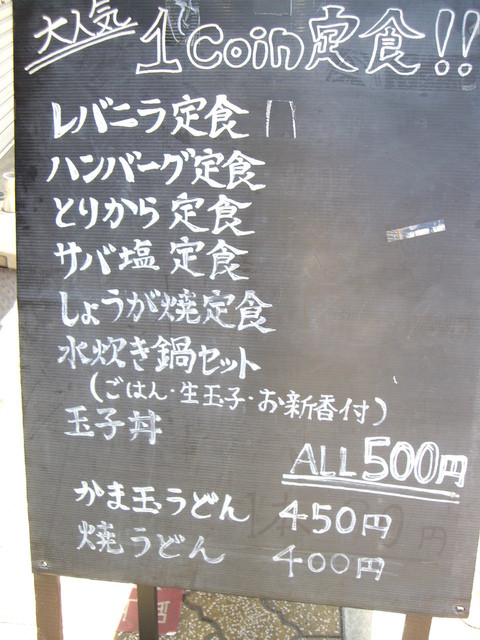 大人気 1Coin定食!!
レバニラ定食
ハンバーグ定食
とりから定食
サバ塩定食
しょうが焼定食
水炊き鍋セット
(ごはん・生玉子・お新香付)
玉子丼
ALL500円
かま玉うどん 450円
焼うどん 400円